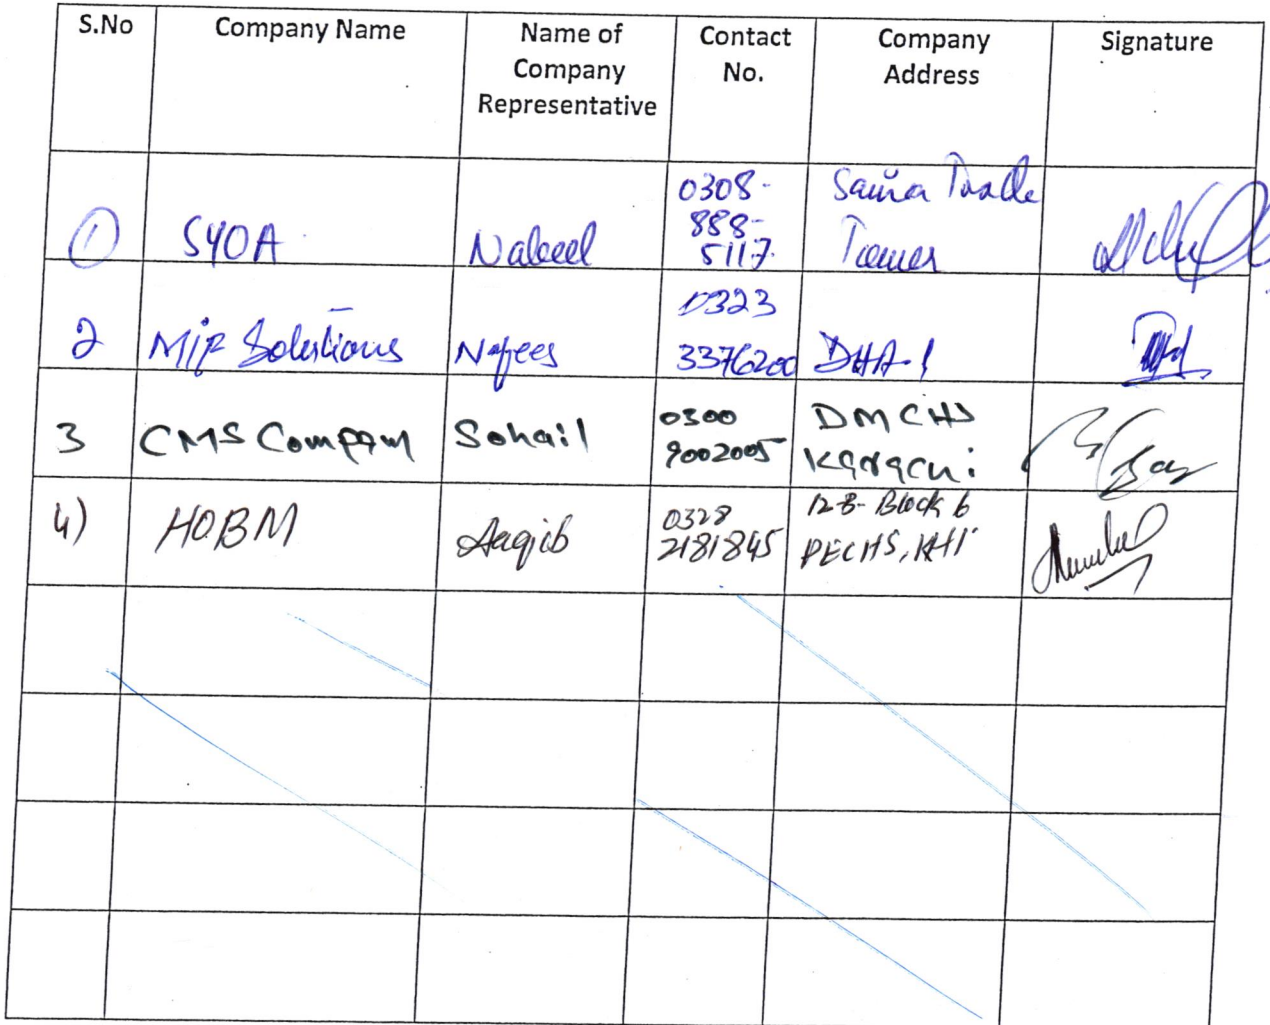 S.No Company Name Name of Company Representative Contact No. Company Address Signature
1 SYOA 0308-888-5117 Tower
2 Solutions Nafees 0323 3376200 DHA-1
3 CMS Company Sohail 0300 9002005 DMCHS Karachi
4) HOBM Aaqib 0328 2181845 12-B-Block 6 PECHS, KHI